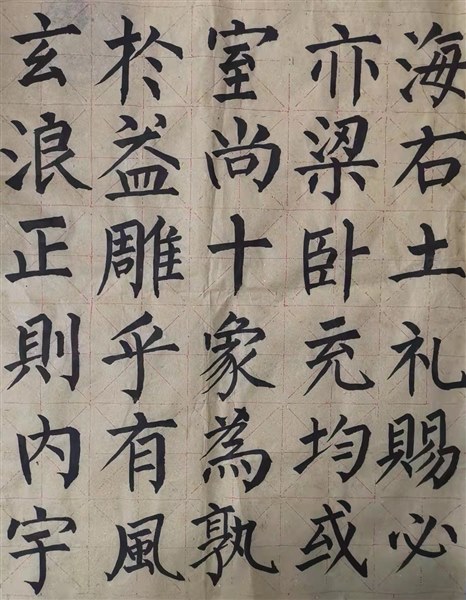 海右土礼賜必
亦梁卧充均或
室尚十象為孰
於益雕乎有風
玄浪正則内宇